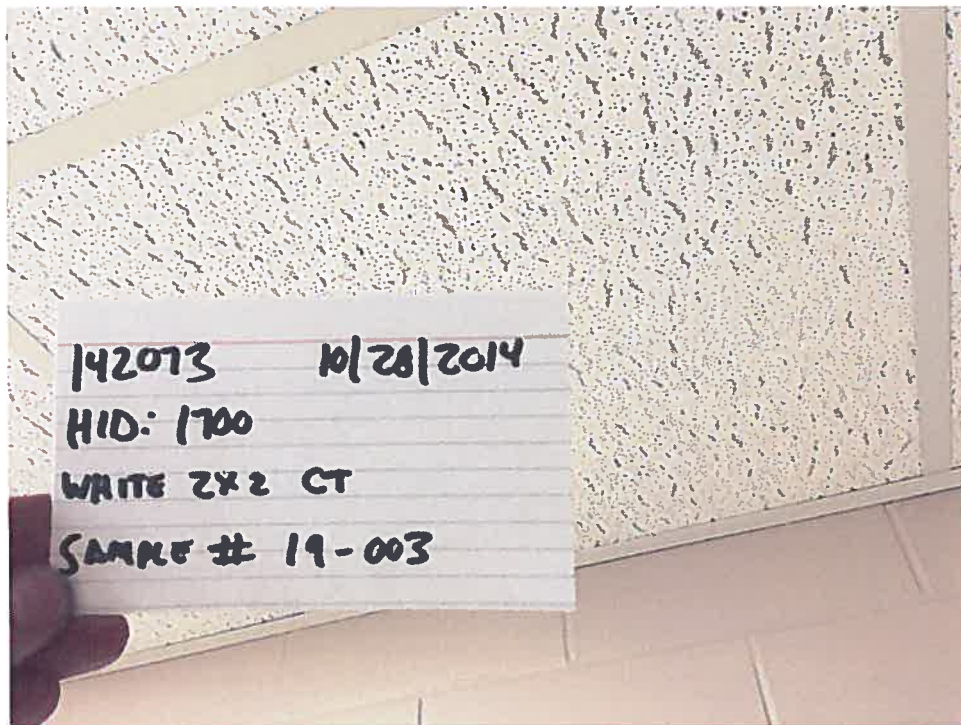 142073 10/28/2014
HID: 1700
WHITE 2X2 CT
SAMPLE # 19-003